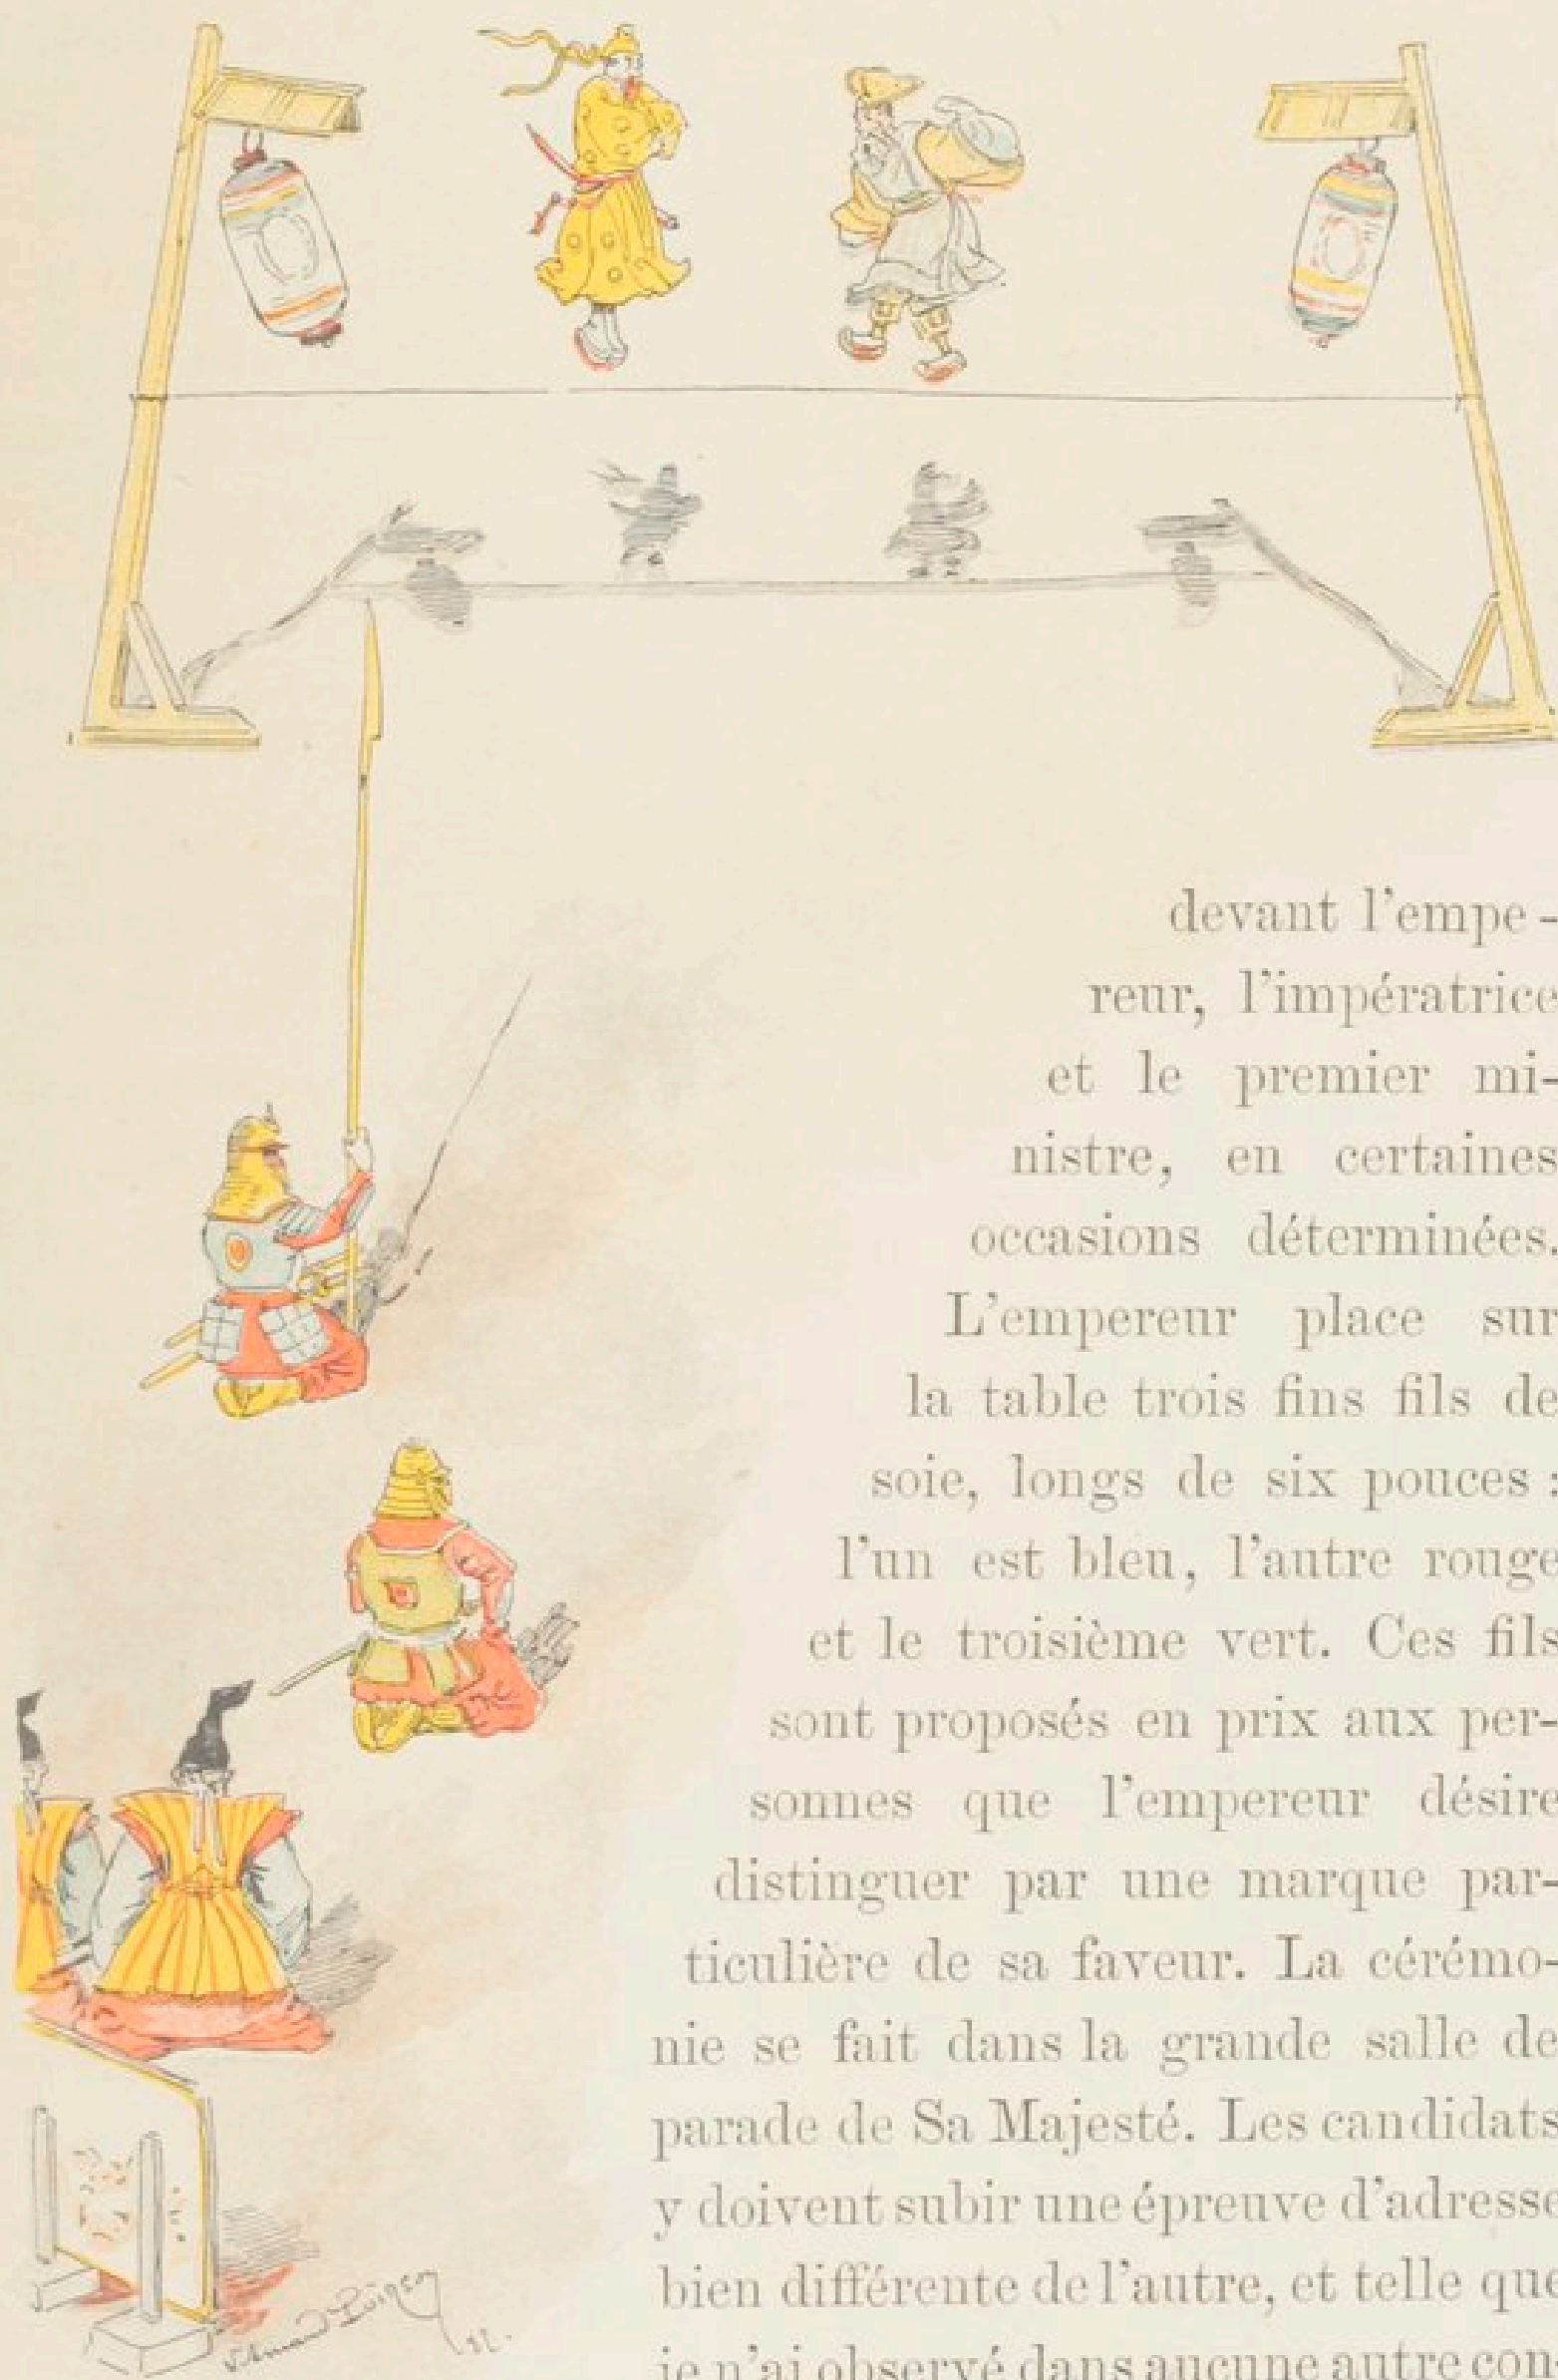 devant l'empe-
reur, l'impératrice
et le premier mi-
nistre, en certaines
occasions déterminées.
L'empereur place sur
la table trois fins fils de
soie, longs de six pouces :
l'un est bleu, l'autre rouge
et le troisième vert. Ces fils
sont proposés en prix aux per-
sonnes que l'empereur désire
distinguer par une marque par-
ticulière de sa faveur. La cérémo-
nie se fait dans la grande salle de
parade de Sa Majesté. Les candidats
y doivent subir une épreuve d'adresse
bien différente de l'autre, et telle que
je n'ai observé dans aucune autre con